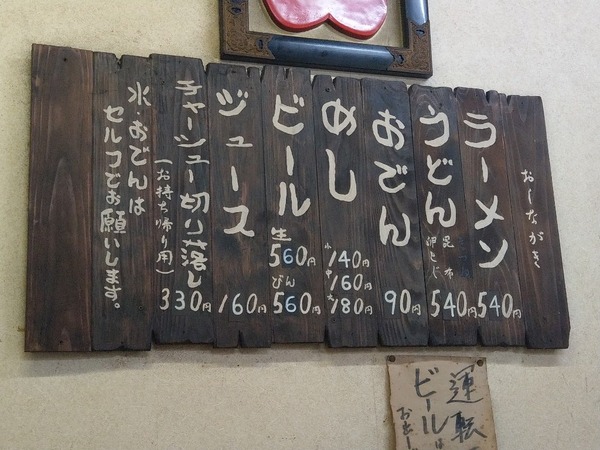 おしながき
ラーメン 540円
うどん 昆布 卵とじ 540円
おでん 90円
めし 小140円 中160円 大180円
ビール 生560円 びん560円
ジュース 160円
チャーシュー切り落し (お持ち帰り用) 330円
水・おでんは
セルフでお願いします。
運転
ビールは
お出し